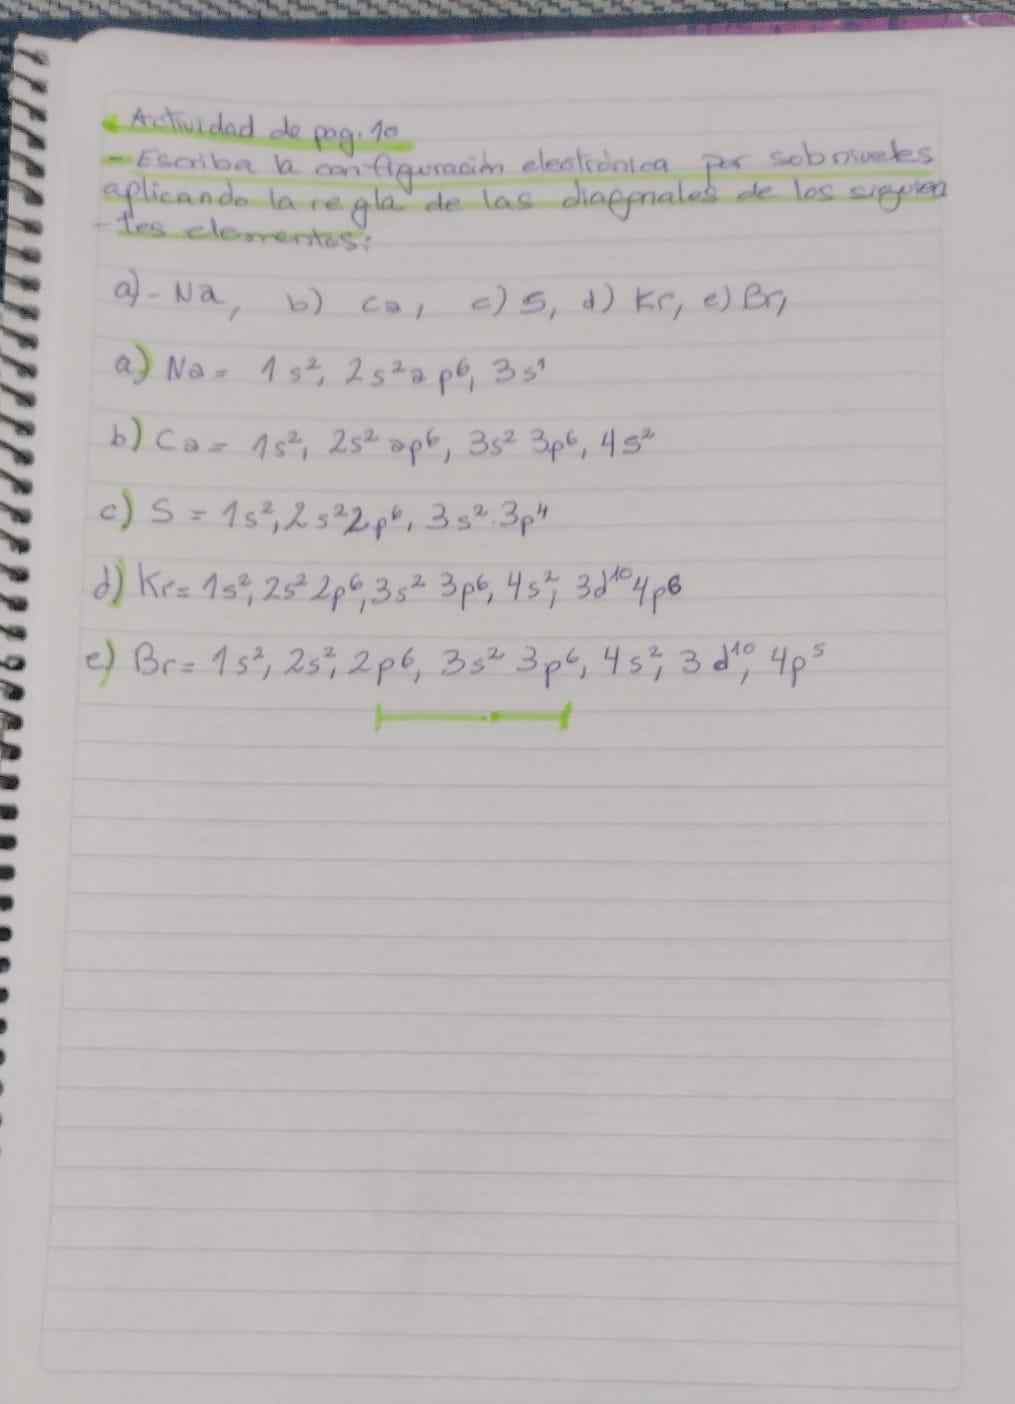 Actividad de pag. 10
- Escriba la configuración electrónica por sobniveles
aplicando la regla de las diagonales de los siguien
-tes elementos:
a)- Na, b) Ca, c) S, d) Kr, e) Br,
a) Na = 1s², 2s² 2p⁶, 3s¹
b) Ca = 1s², 2s² 2p⁶, 3s² 3p⁶, 4s²
c) S = 1s², 2s² 2p⁶, 3s² 3p⁴
d) Kr = 1s², 2s² 2p⁶, 3s² 3p⁶, 4s², 3d¹⁰ 4p⁶
e) Br = 1s², 2s², 2p⁶, 3s² 3p⁶, 4s², 3d¹⁰, 4p⁵